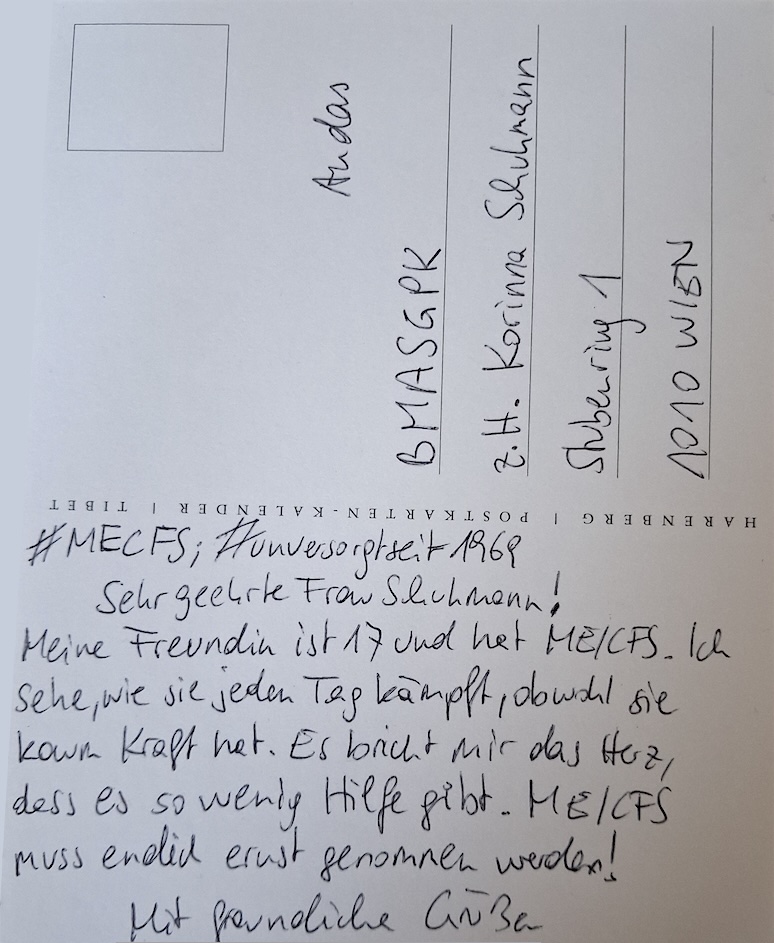 An das
BMASGPK
z.H. Korinna Schuhmann
Stubenring 1
1010 WIEN
HARENBERG | POSTKARTEN-KALENDER | TIBET
#MECFS; #unversorgtseit1969
Sehr geehrte Frau Schuhmann!
Meine Freundin ist 17 und hat ME/CFS. Ich
sehe, wie sie jeden Tag kämpft, obwohl sie
kaum Kraft hat. Es bricht mir das Herz,
dass es so wenig Hilfe gibt. ME/CFS
muss endlich ernst genommen werden!
Mit freundliche Grüßen